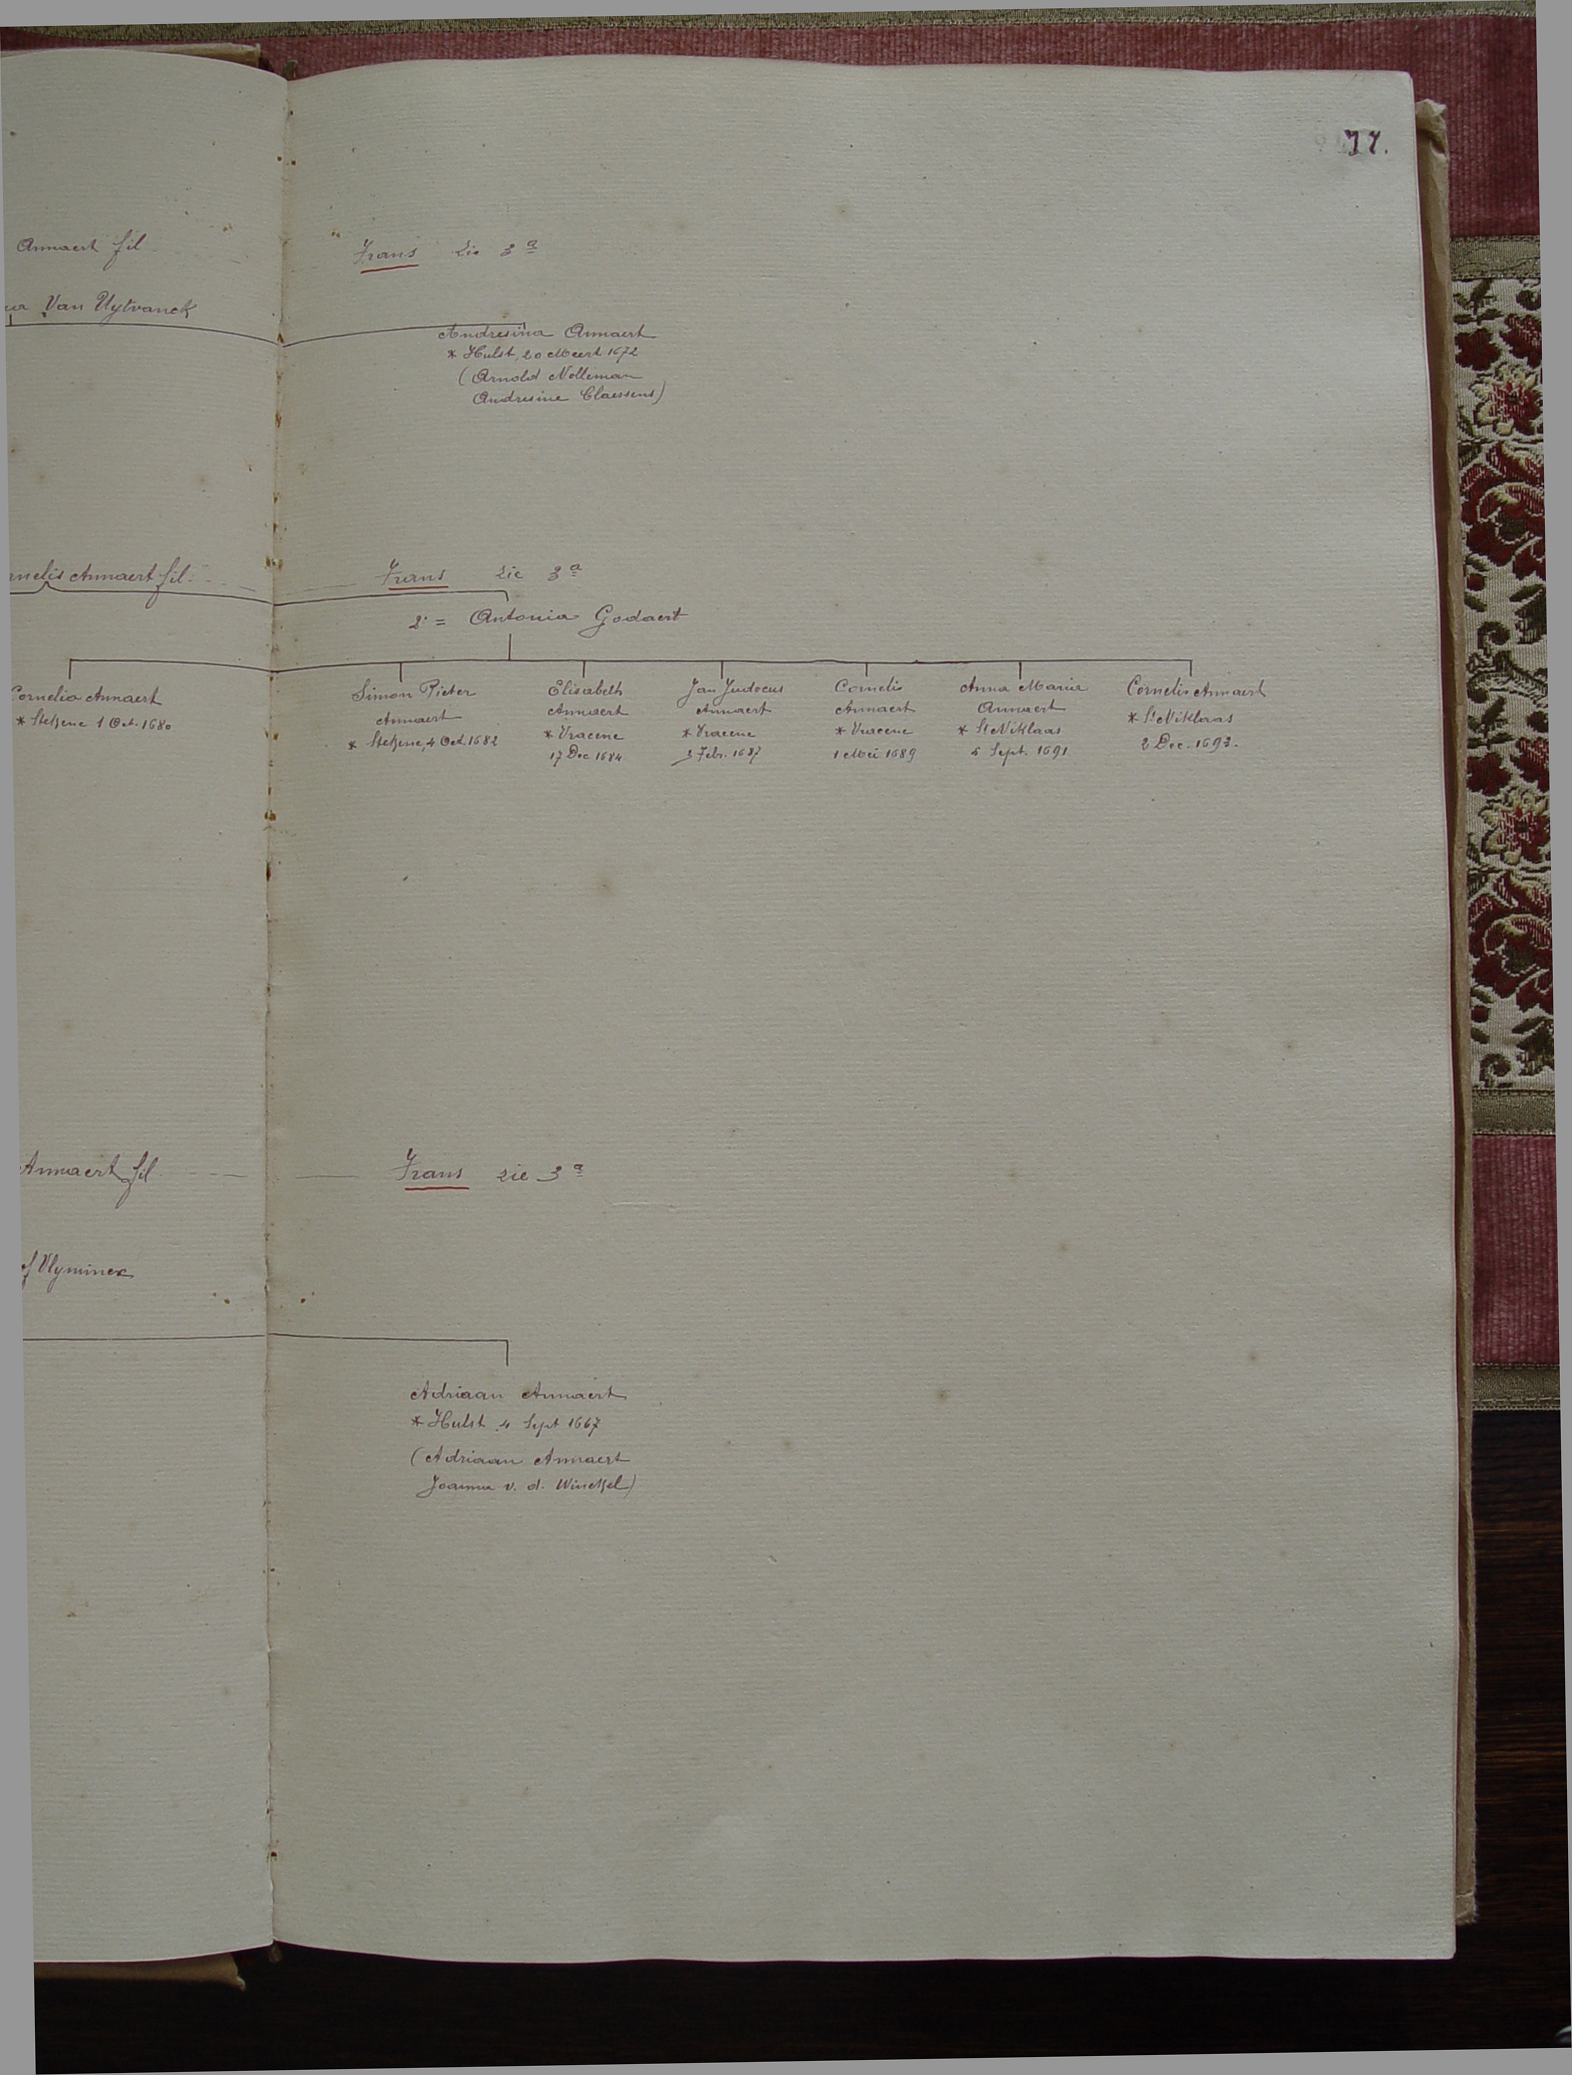 77.
Annaert fil Frans zie 3ª
Van Uytvanck
Andresina Annaert
* Hulst, 20 Meert 1672
(Arnold Nolleman
Andresine Claessens)
nelis Annaert fil. Frans zie 3ª
2° = Antonia Godaert
Cornelia Annaert
* Stekene 1 Oct. 1680
Simon Pieter
Annaert
* Stekene, 4 Oct. 1682
Elisabeth
Annaert
* Vracene
17 Dec 1684
Jan Judocus
Annaert
* Vracene
3 Febr. 1687
Cornelis
Annaert
* Vracene
1 Mei 1689
Anna Maria
Annaert
* St Niklaas
5 Sept. 1691
Cornelis Annaert
* St Niklaas
2 Dec. 1693.
Annaert fil Frans zie 3ª
Vlyminex
Adriaan Annaert
* Hulst 4 Sept 1667
(Adriaan Annaert
Joanna v. d. Winckel)